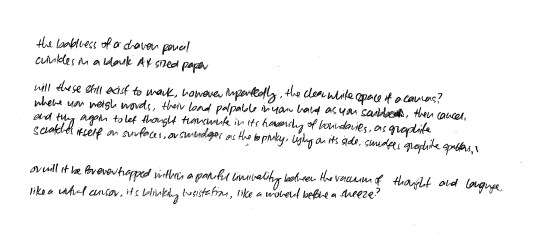 the boldness of a drawn pencil
crinkles in a blank A4 sized paper
will these still exist to mark, however imperfectly, the clear white space of a canvas?
where you weigh words, their load palpable in your hand as you scribble, then cancel,
and try again to let thought transmute in its of boundaries, as graphite
scratches itself on surfaces, or smudges as the pinky, lying on its side, smudges graphite
or will it be forever trapped within a painful liminality between the vacuum of thought and language
like a virtual cursor, its blinking hesitation, like a moment before a sneeze?